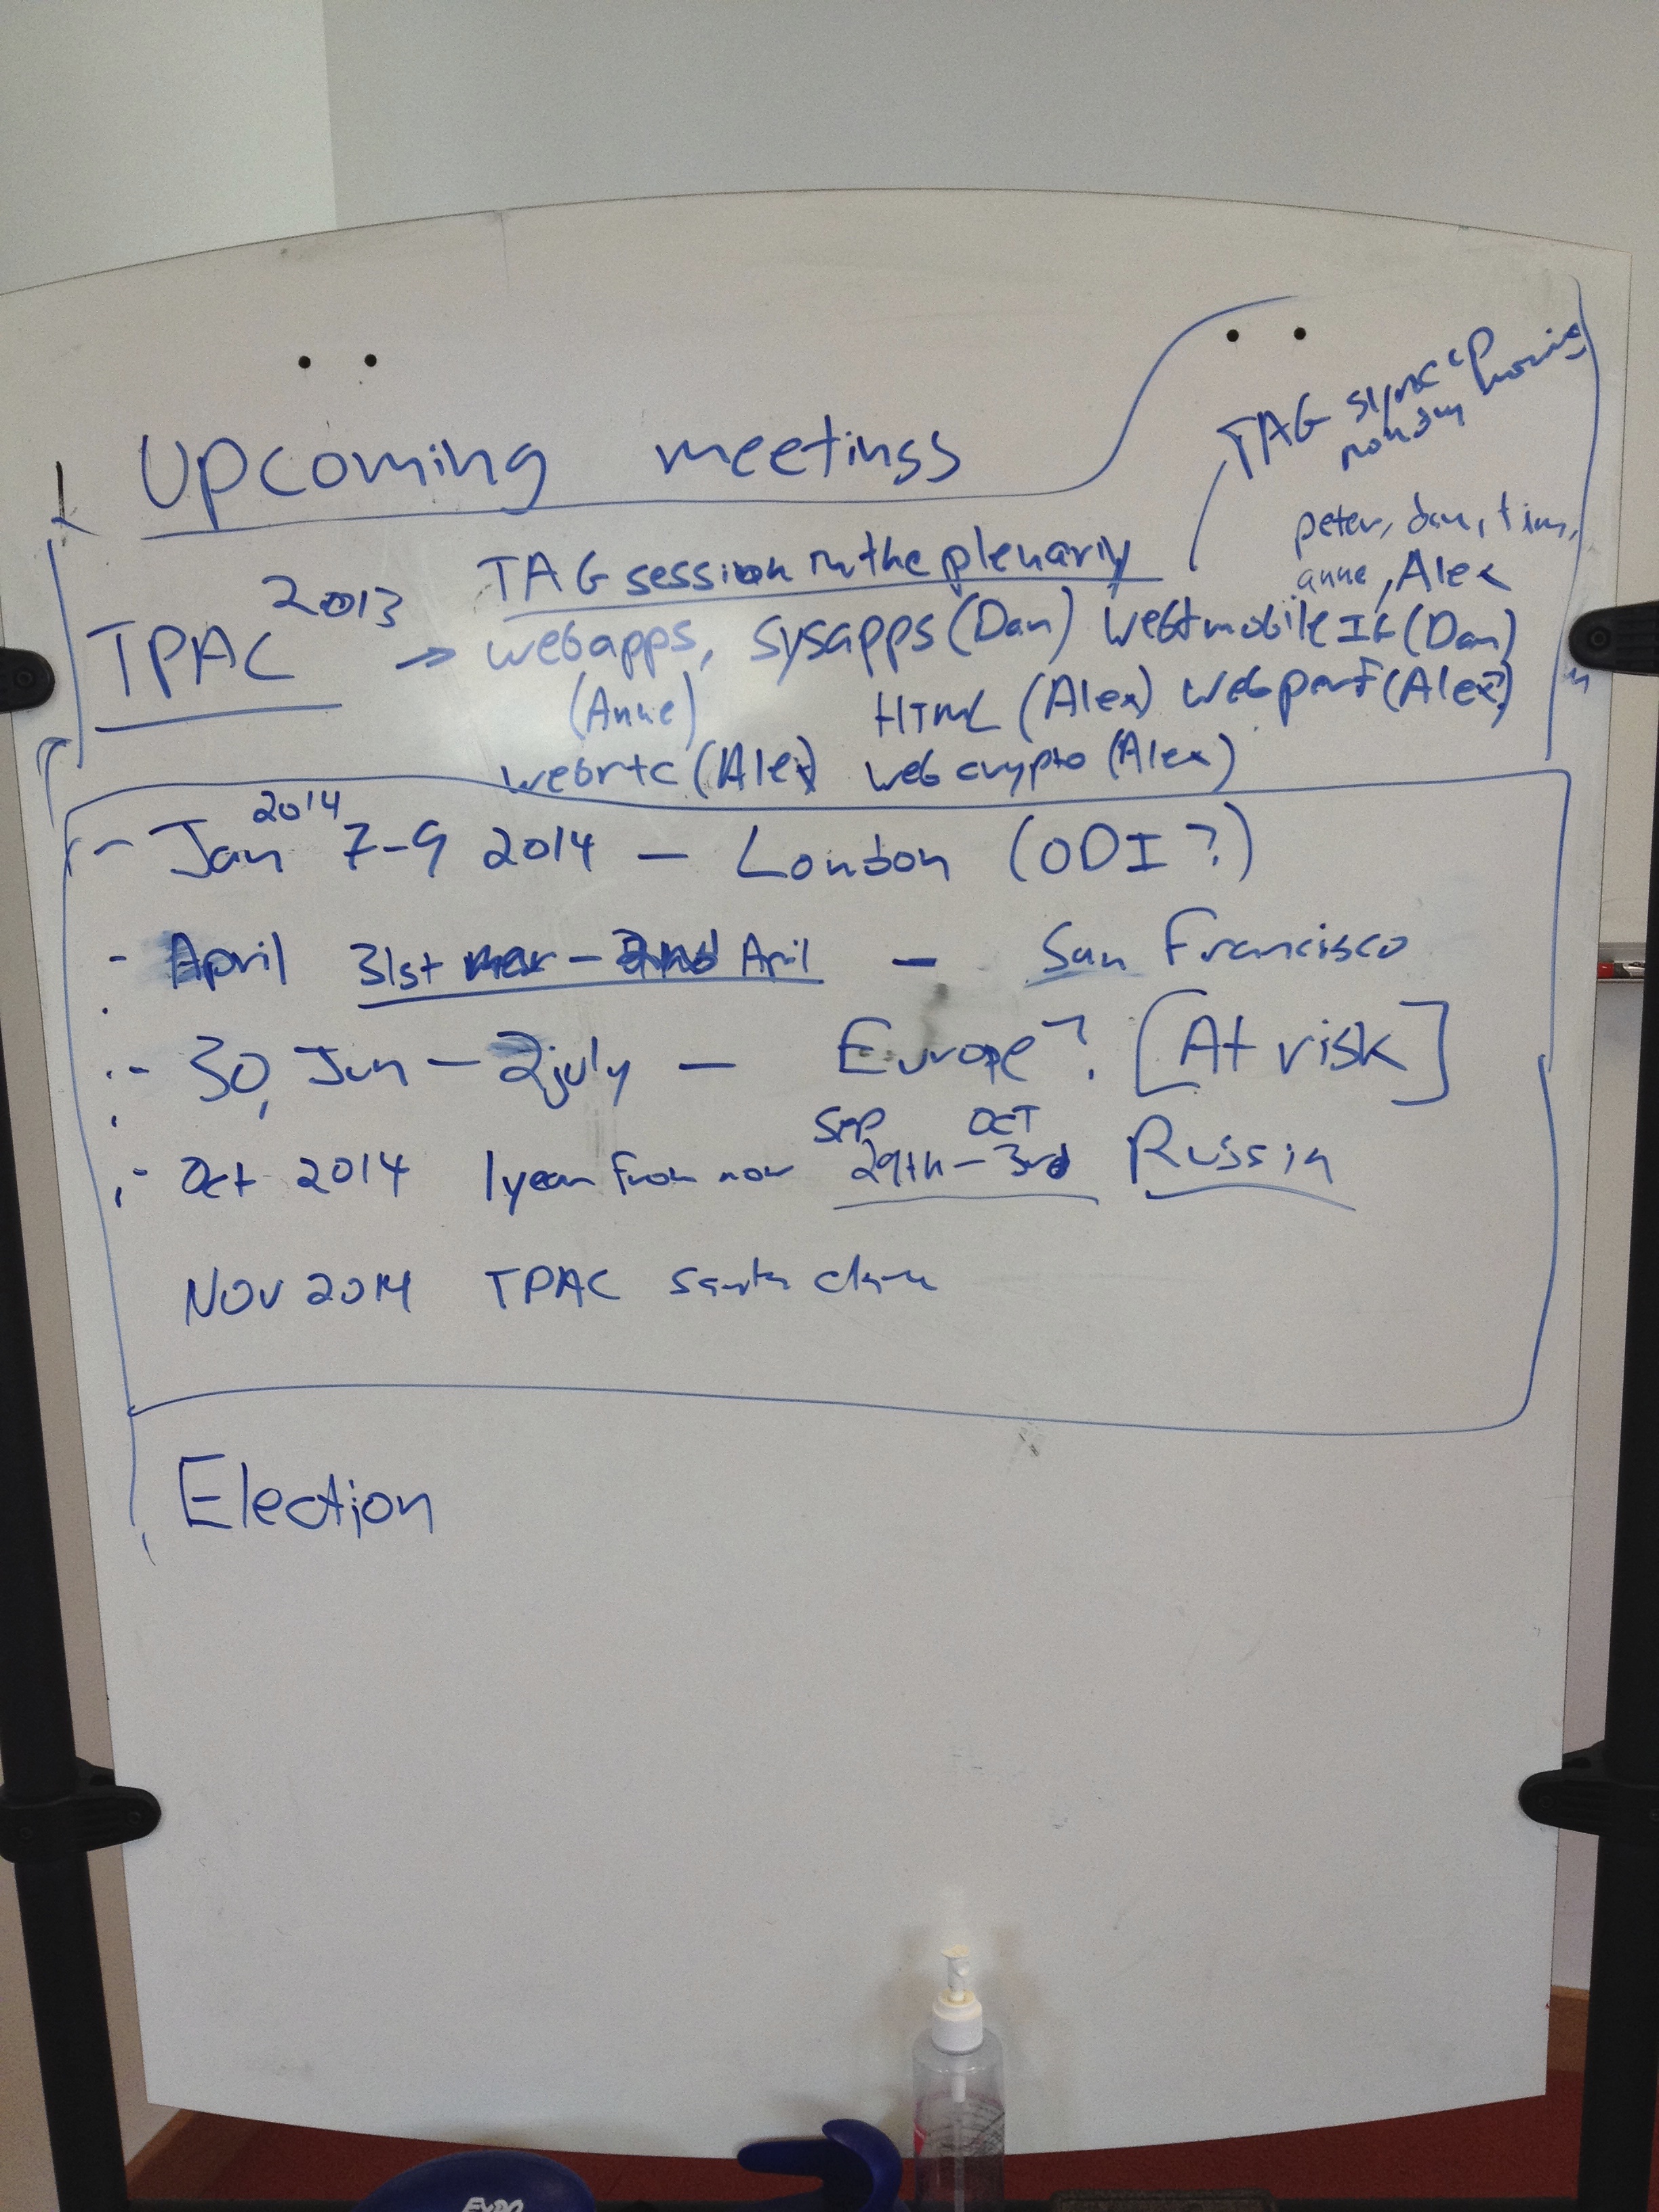 Upcoming meetings
TAG sync up
monday morning
peter, dan, tim,
anne, Alex
TAG session in the plenariy
2013
TPAC → webapps, sysapps (Dan) Web+mobile IG (Dan)
(Anne) HTML (Alex) Web perf (Alex?)
webrtc (Alex) web crypto (Alex)
2014
- Jan 7-9 2014 - London (ODI?)
- April 31st mar - 2nd Aril - San Francisco
- 30, Jun - 2 july - Europe? [At risk]
SEP OCT
- Oct 2014 1 year from now 29th - 3rd Russia
NOV 2014 TPAC Santa Clara
Election
EXPO